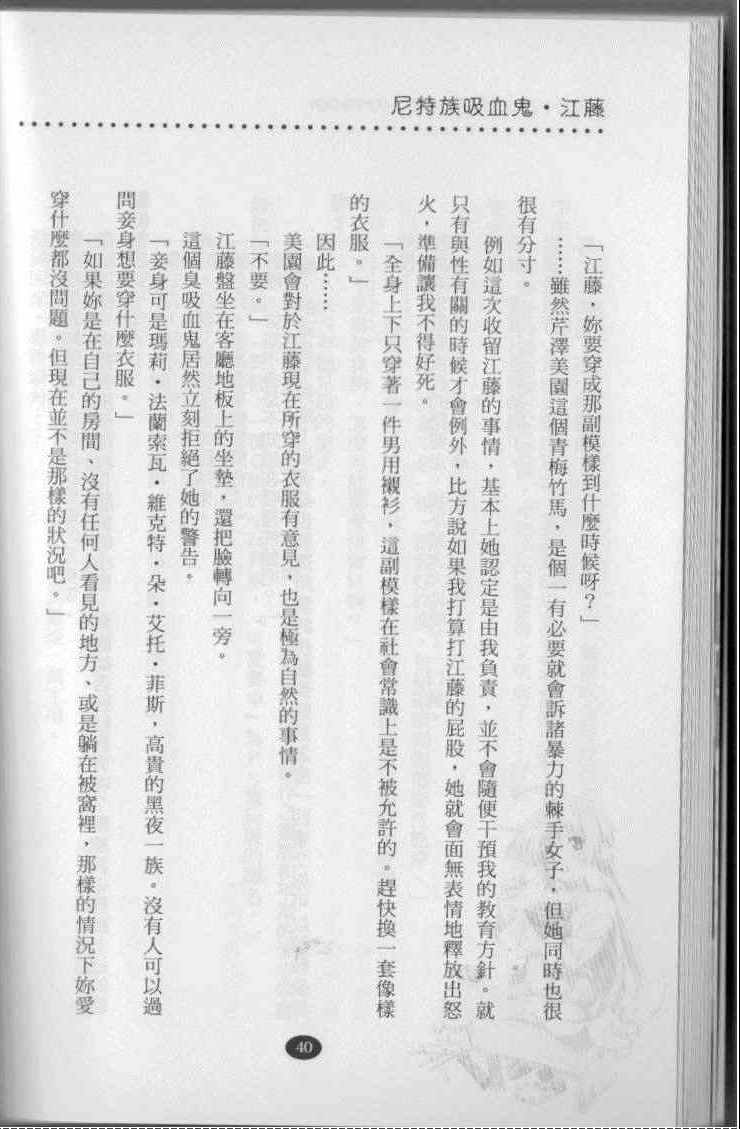 尼特族吸血鬼・江藤
「江藤，妳要穿成那副模樣到什麼時候呀？」
……雖然芹澤美園這個青梅竹馬，是個一有必要就會訴諸暴力的棘手女子，但她同時也很
很有分寸。
例如這次收留江藤的事情，基本上她認定是由我負責，並不會隨便干預我的教育方針。就
只有與性有關的時候才會例外，比方說如果我打算打江藤的屁股，她就會面無表情地釋放出怒
火，準備讓我不得好死。
「全身上下只穿著一件男用襯衫，這副模樣在社會常識上是不被允許的。趕快換一套像樣
的衣服。」
因此……
美園會對於江藤現在所穿的衣服有意見，也是極為自然的事情。
「不要。」
江藤盤坐在客廳地板上的坐墊，還把臉轉向一旁。
這個臭吸血鬼居然立刻拒絕了她的警告。
「妾身可是瑪莉・法蘭索瓦・維克特・朵・艾托・菲斯，高貴的黑夜一族。沒有人可以過
問妾身想要穿什麼衣服。」
「如果妳是在自己的房間、沒有任何人看見的地方、或是躺在被窩裡，那樣的情況下妳愛
穿什麼都沒問題。但現在並不是那樣的狀況吧。」
40